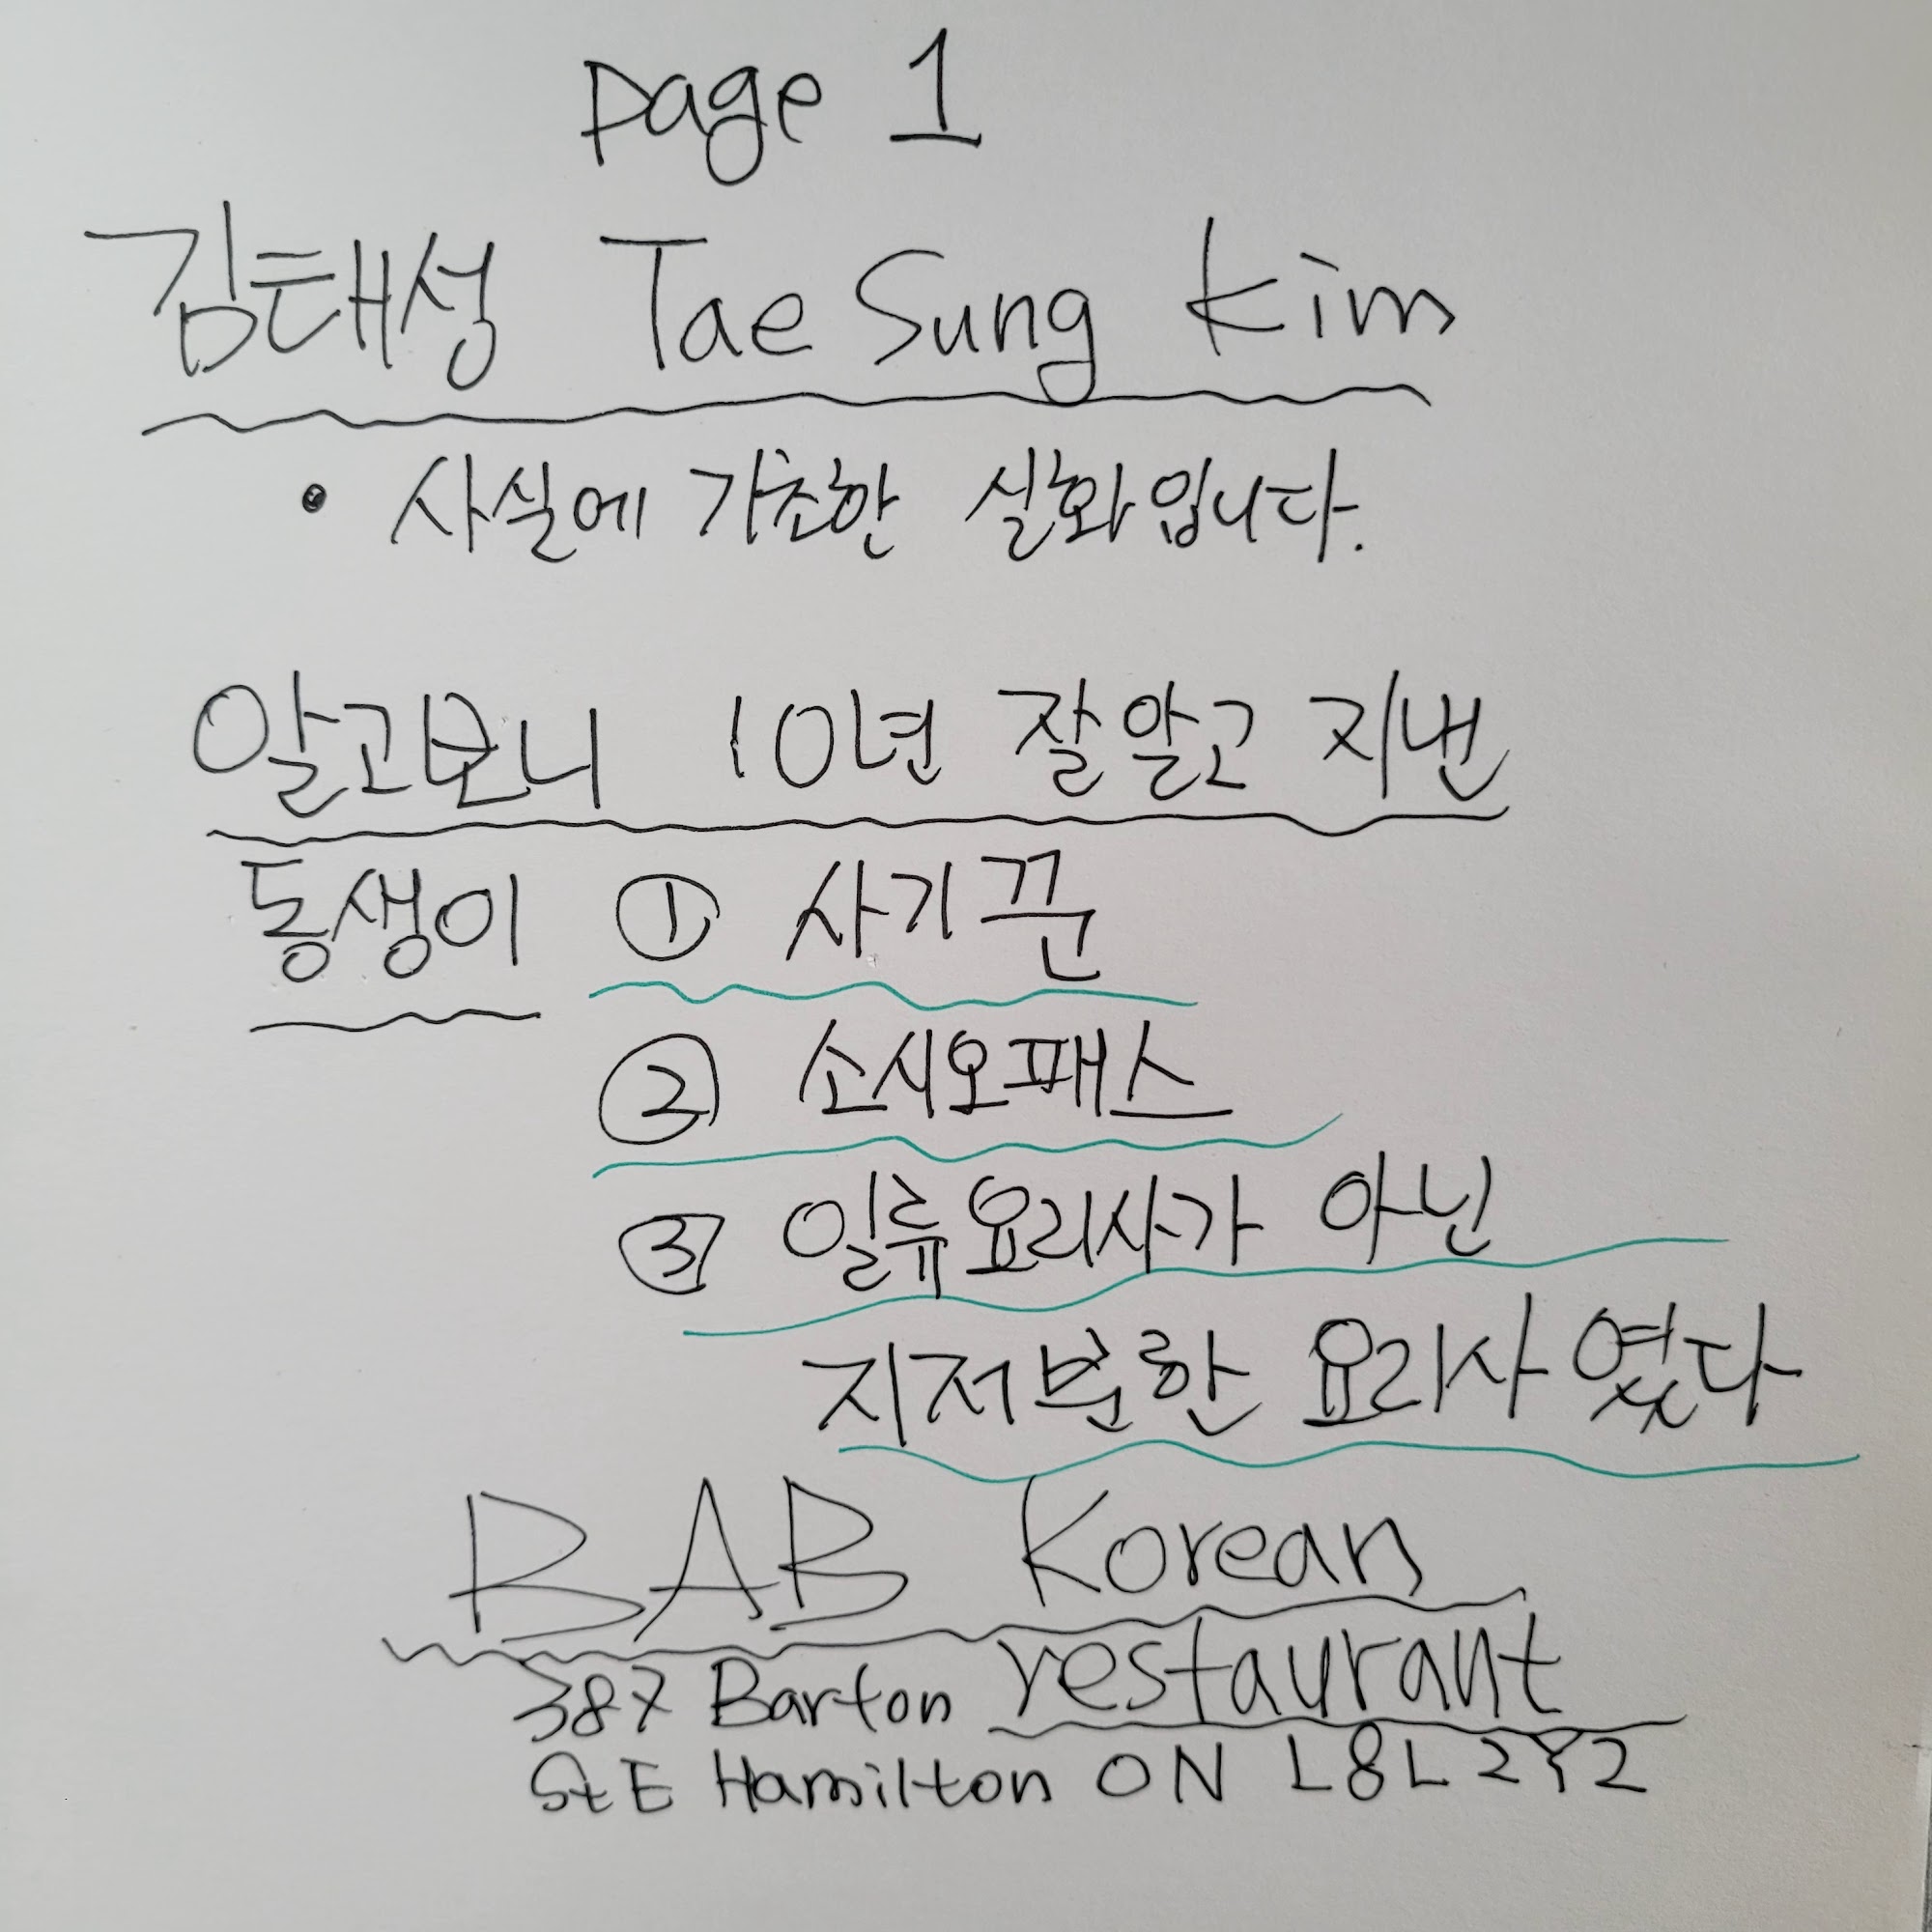 page 1
김태성 Tae Sung Kim
• 사실에 기초한 실화입니다.
알고보니 10년 잘알고 지낸
동생이 ① 사기꾼
② 소시오패스
③ 일류요리사가 아닌
지저분한 요리사 였다
BAB Korean
restaurant
387 Barton
St E Hamilton ON L8L 2Y2